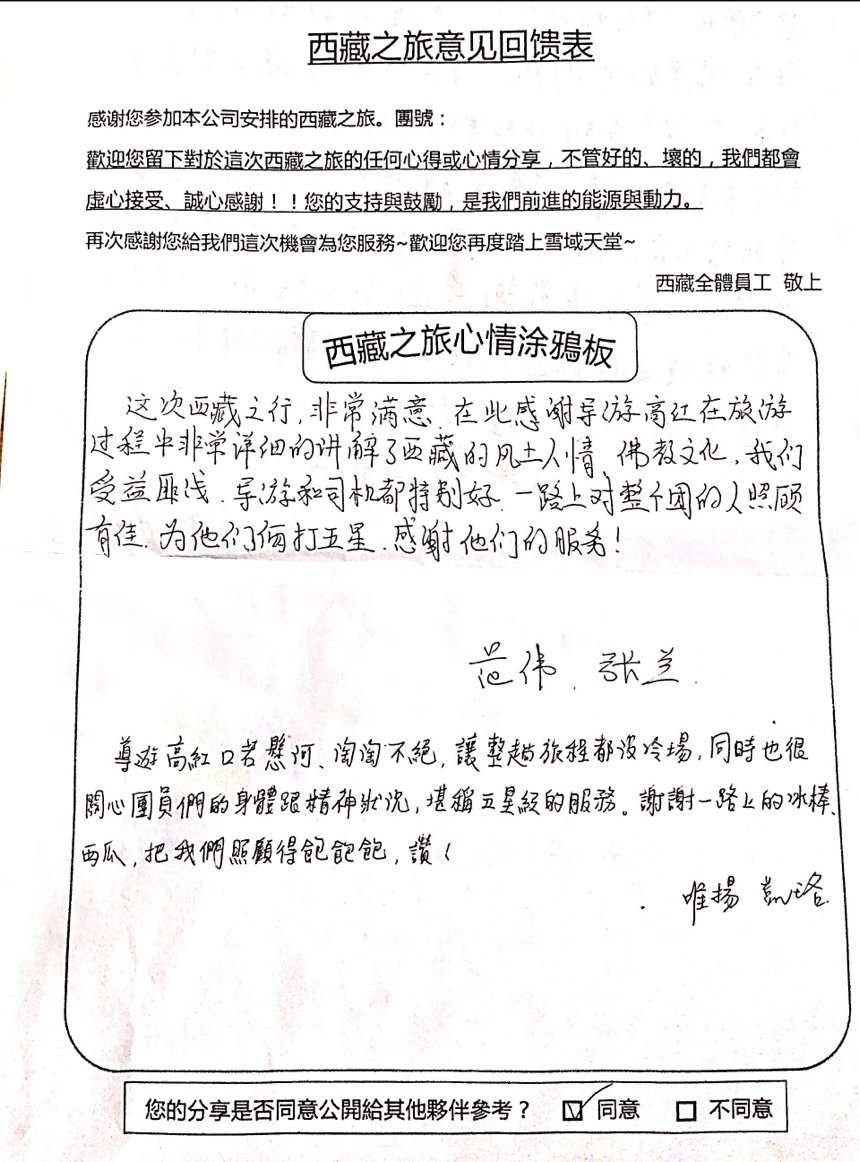 西藏之旅意见回馈表
感谢您参加本公司安排的西藏之旅。團號：
歡迎您留下對於這次西藏之旅的任何心得或心情分享，不管好的、壞的，我們都會
虛心接受、誠心感謝！！您的支持與鼓勵，是我們前進的能源與動力。
再次感謝您給我們這次機會為您服務~歡迎您再度踏上雪域天堂~
西藏全體員工 敬上
西藏之旅心情涂鴉板
这次西藏之行，非常满意．在此感谢导游高红在旅游
过程中非常详细的讲解了西藏的风土人情，佛教文化，我们
受益匪浅．导游和司机都特别好．一路上对整个团的人照顾
有佳．为他们俩打五星．感谢他们的服务！
范伟．张兰．
導遊高紅口若懸河、淘淘不絕，讓整趟旅程都沒冷場，同時也很
關心團員們的身體跟精神狀況，堪稱五星級的服務。謝謝一路上的冰棒、
西瓜，把我們照顧得飽飽飽，讚！
唯揚 凱珞
您的分享是否同意公開給其他夥伴參考？ ☑ 同意 □ 不同意